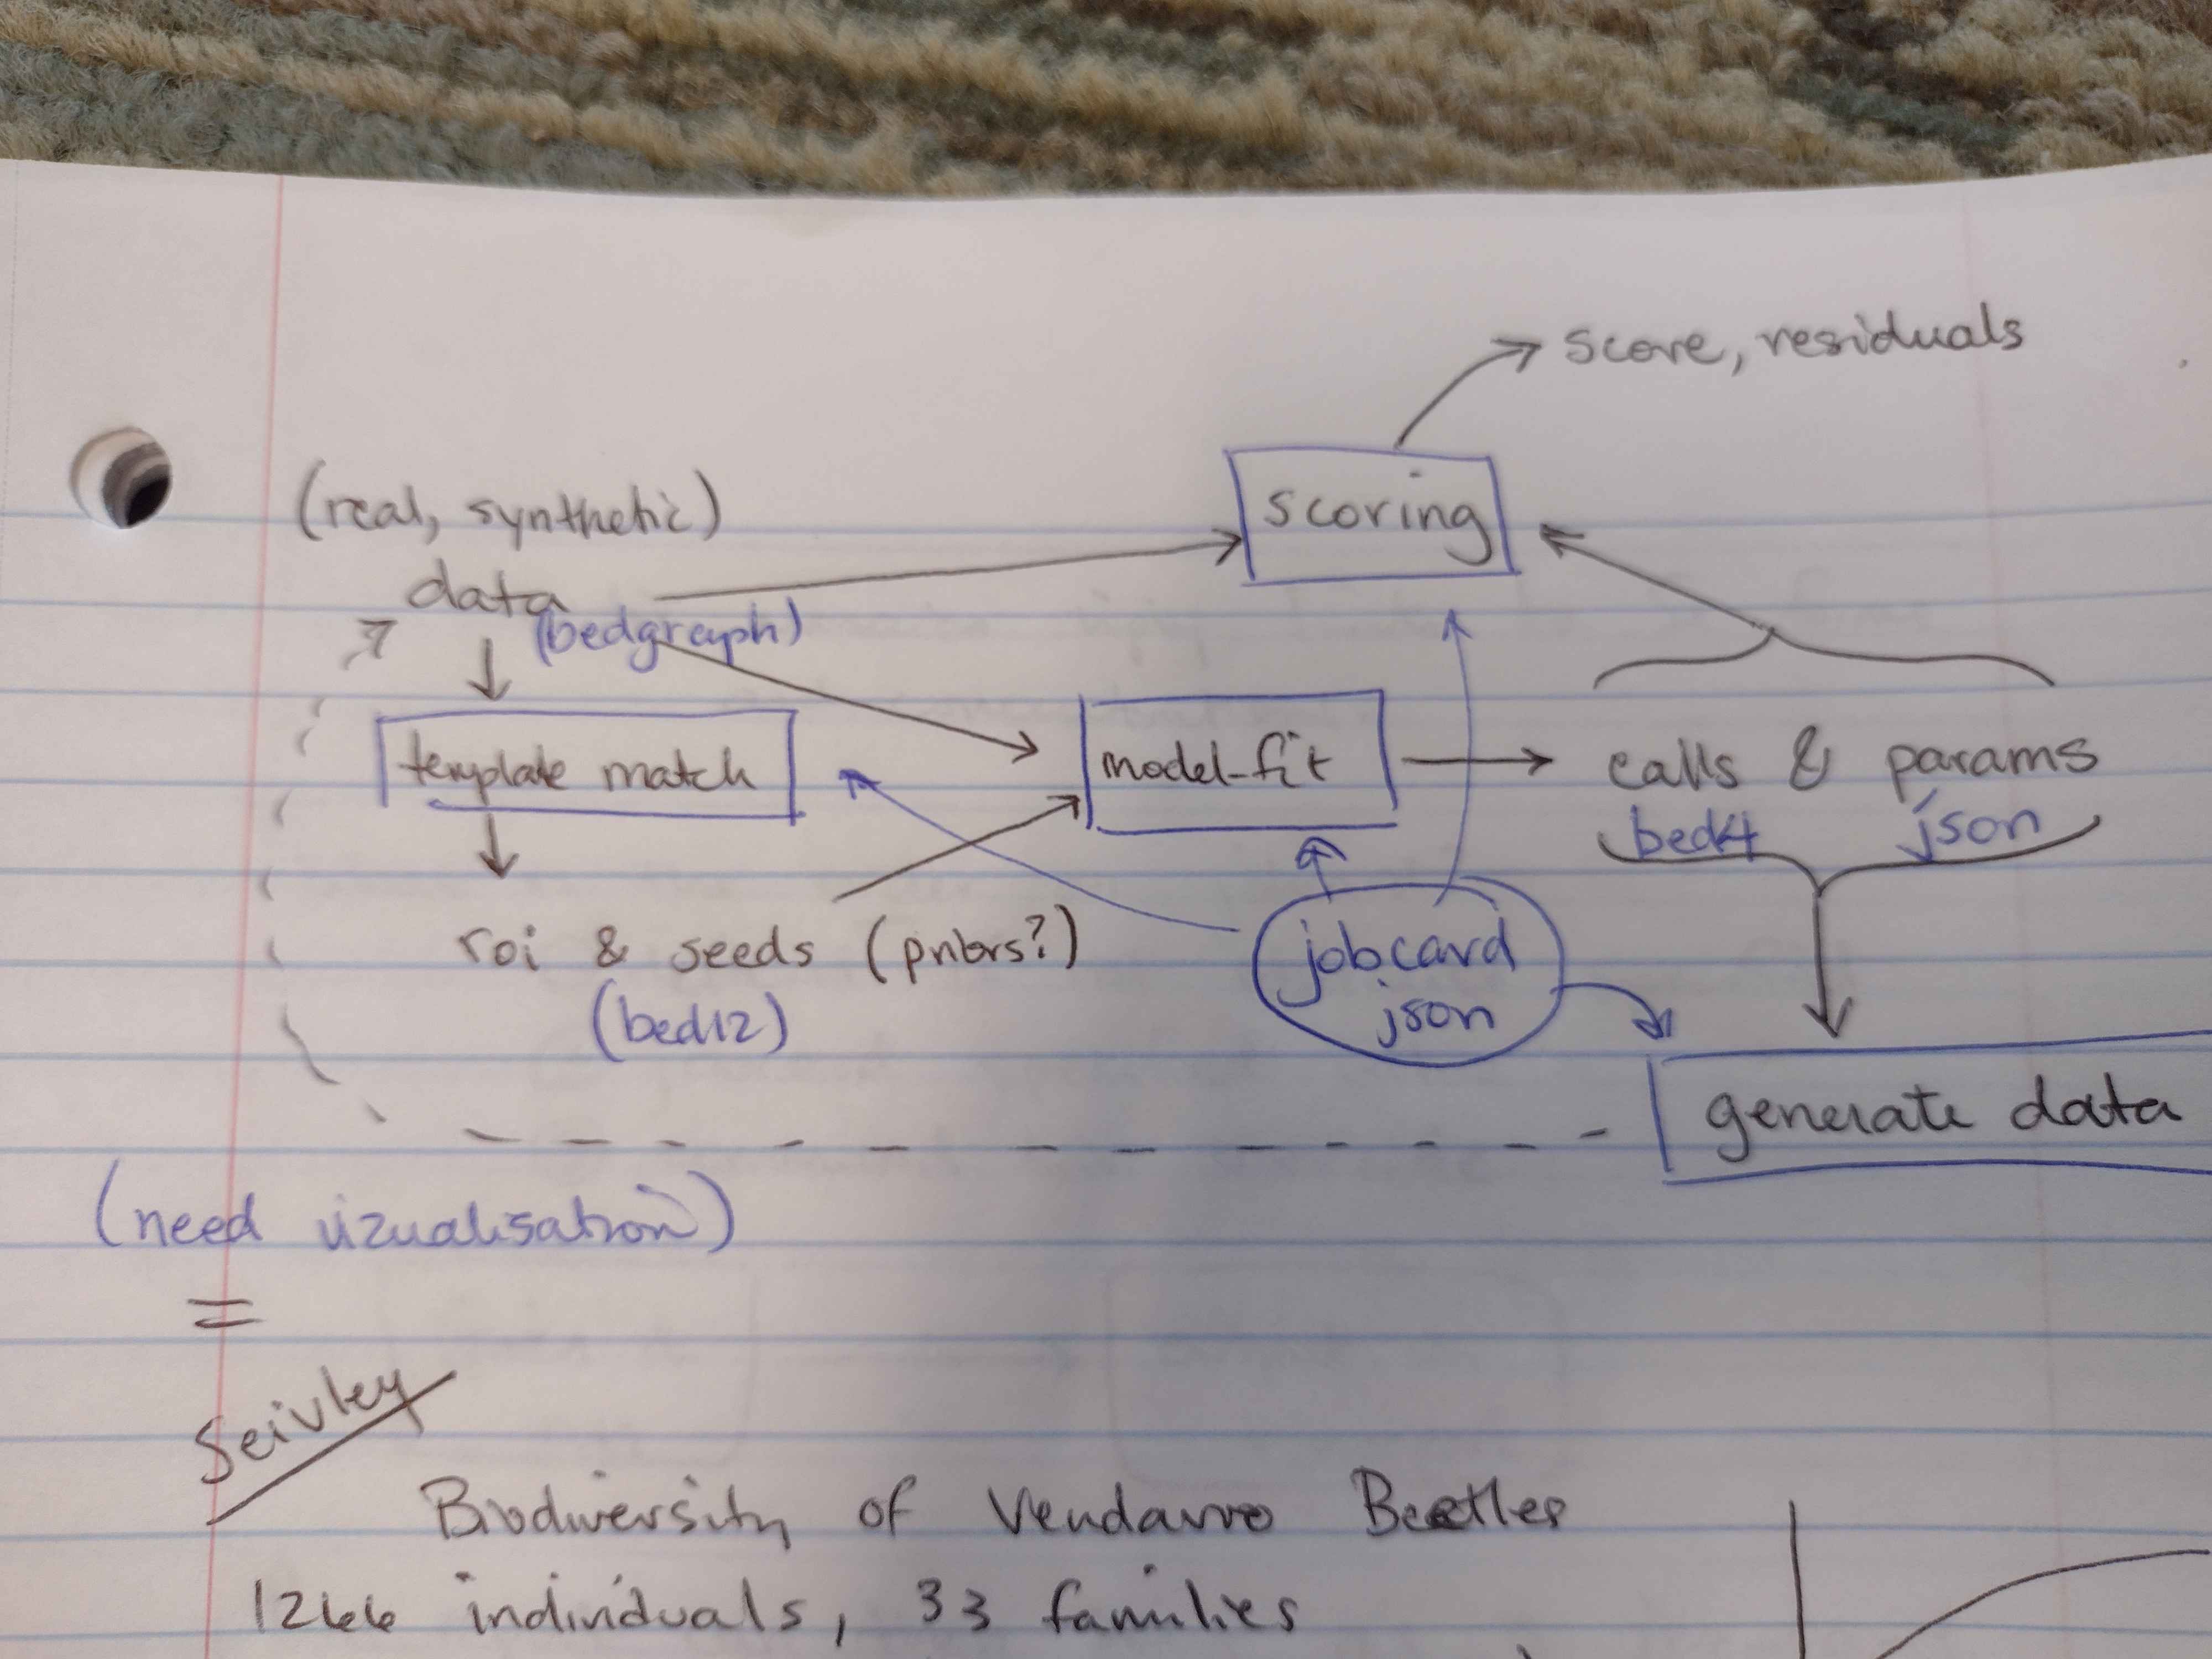 score, residuals
(real, synthetic)
scoring
data
(bedgraph)
template match
model-fit
calls & params
bed4
json
roi & seeds (priors?)
(bed12)
jobcard
json
generate data
(need vizualisation)
=
Biodiversity of Beetles
1266 individuals, 33 families